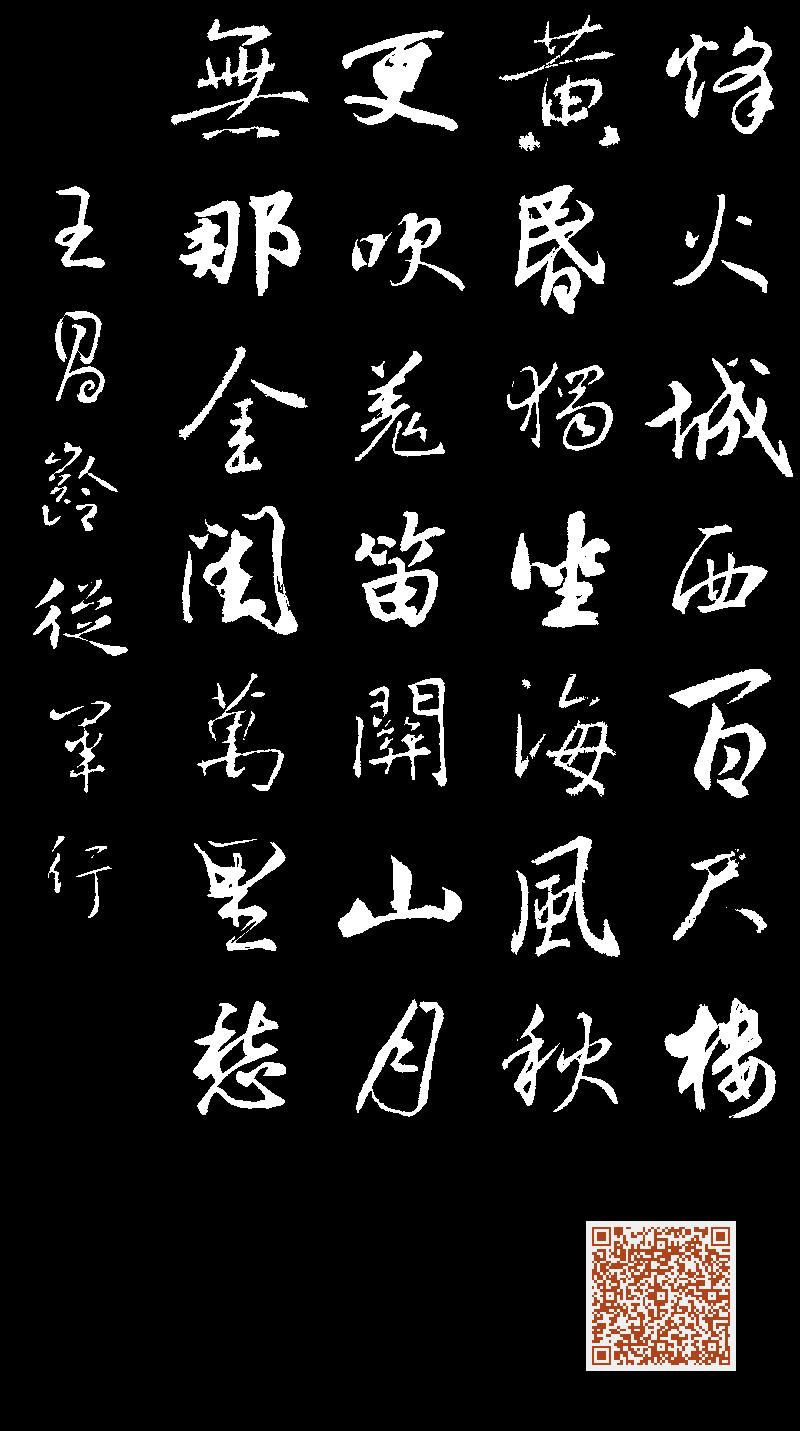 烽火城西百尺樓
黃昏獨坐海風秋
更吹羌笛關山月
無那金閨萬里愁
王昌齡從軍行